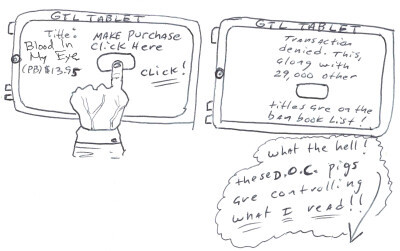 GTL TABLET
Title:
Blood In
My Eye
(PB) $13.95
MAKE PURCHASE
Click Here
CLICK!
GTL TABLET
Transaction
denied. This,
along with
29,000 other
titles are on the
ban book List!
What the hell!
these D.O.C. pigs
are controlling
what I read!!